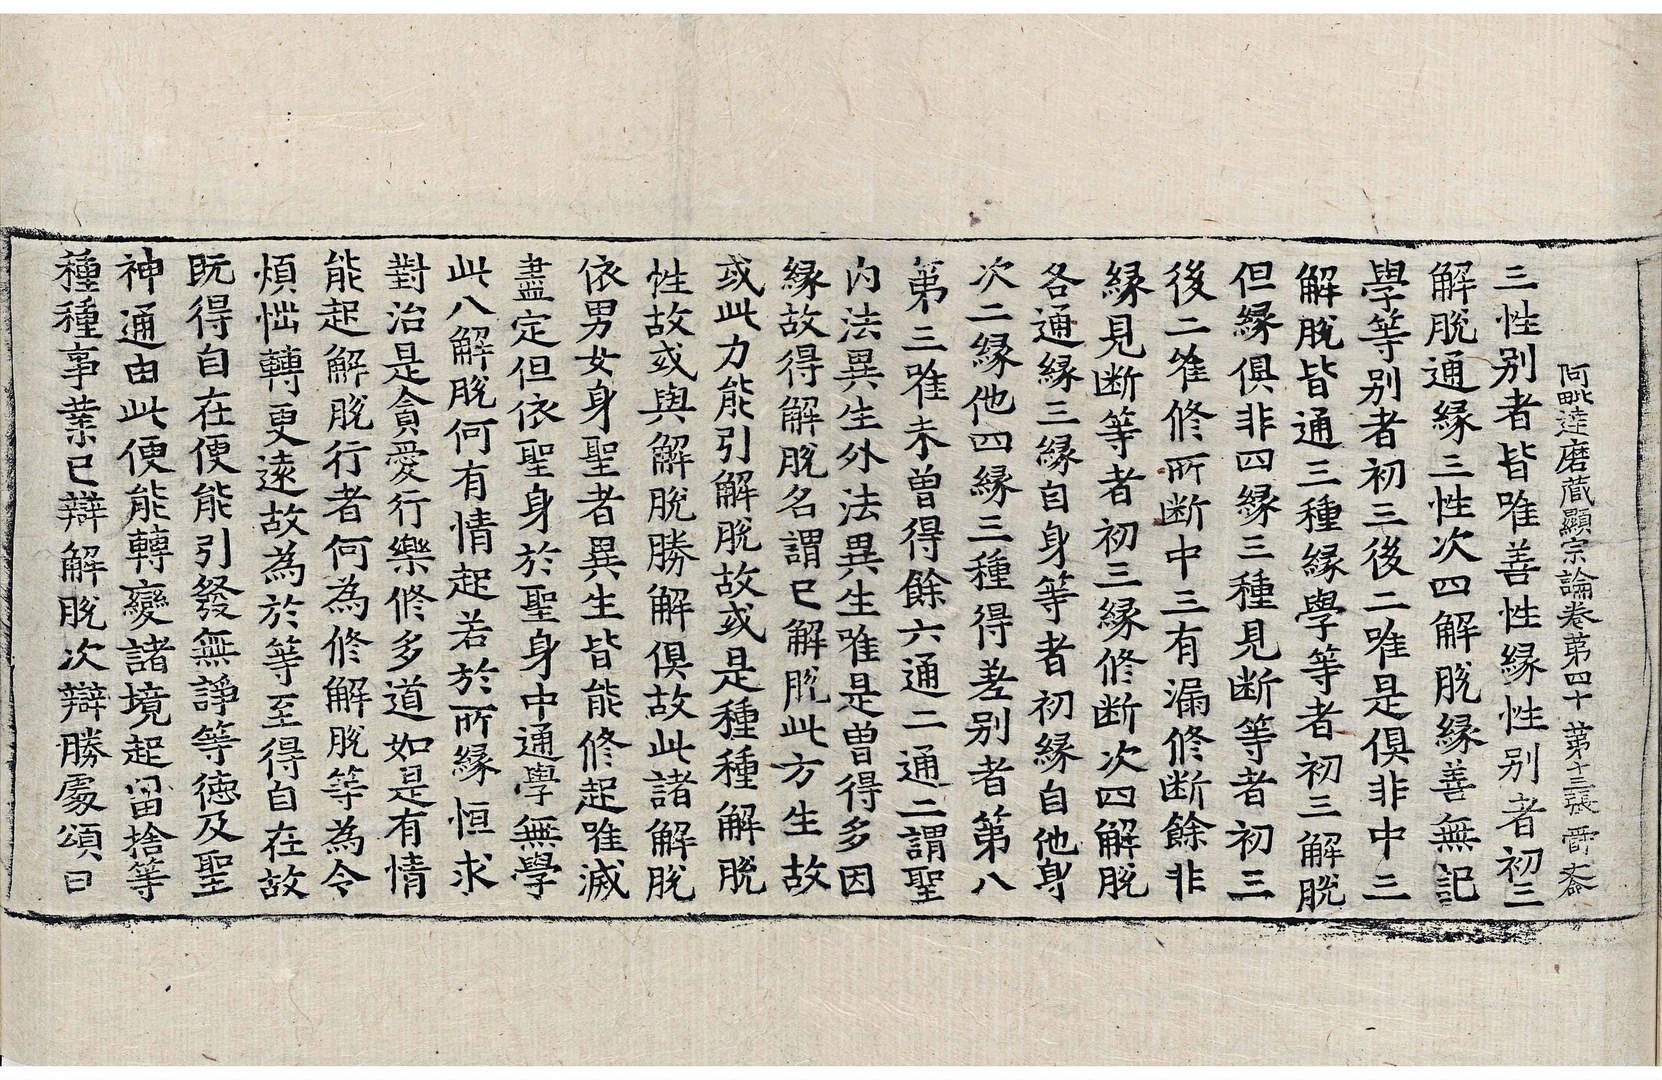 阿毗達磨藏顯宗論卷第四十 第十三張 晉
三性別者皆唯善性緣性別者初三
解脫通緣三性次四解脫緣善無記
學等別者初三後二唯是俱非中三
解脫皆通三種緣學等者初三解脫
但緣俱非四緣三種見斷等者初三
後二唯修所斷中三有漏修斷餘非
緣見斷等者初三緣修斷次四解脫
各通緣三緣自身等者初緣自他身
次二緣他四緣三種得差別者第八
第三唯未曾得餘六通二通二謂聖
內法異生外法異生唯是曾得多因
緣故得解脫名謂已解脫此方生故
或此力能引解脫故或是種種解脫
性故或與解脫勝解俱故此諸解脫
依男女身聖者異生皆能修起唯滅
盡定但依聖身於聖身中通學無學
此八解脫何有情起若於所緣恒求
對治是貪愛行樂修多道如是有情
能起解脫行者何為修解脫等為令
煩惱轉更遠故為於等至得自在故
既得自在便能引發無諍等德及聖
神通由此便能轉變諸境起留捨等
種種事業已辯解脫次辯勝處頌曰